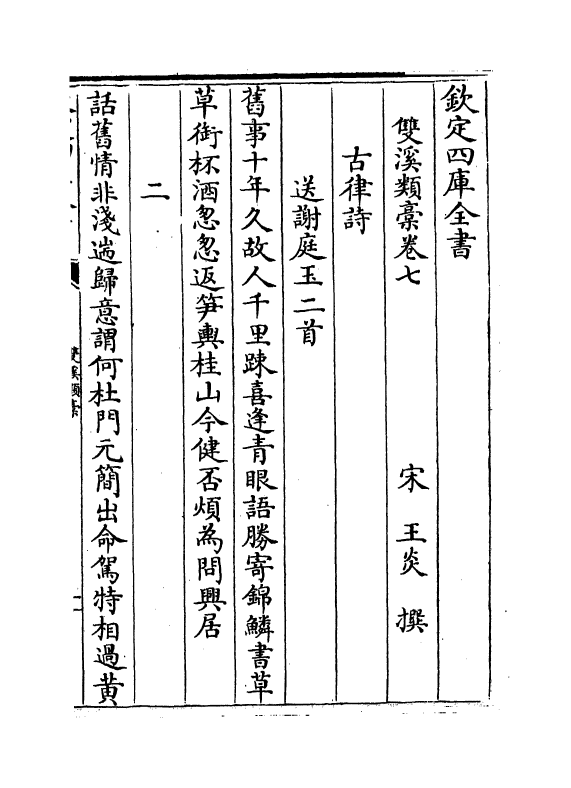 欽定四庫全書
雙溪類稾卷七 宋 王炎 撰
古律詩
送謝庭玉二首
舊事十年久故人千里踈喜逢青眼語勝寄錦鱗書草
草銜杯酒怱怱返笋輿桂山今健否煩為問興居
二
話舊情非淺遄歸意謂何杜門元簡出命駕特相過黄